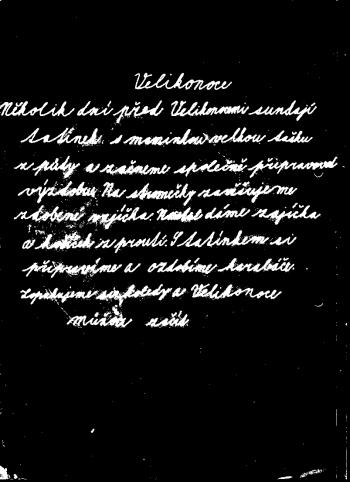 Velikonoce
Několik dní před Velikonocemi sundají
tatínek s maminkou velkou tašku
z půdy a začneme společně připravovat
výzdobu. Na stromečky zavěšujeme
zdobené vajíčka. dáme zajíčka
a z proutí. S tatínkem si
připravíme a ozdobíme karabáče.
Zopakujeme si koledy a Velikonoce
můžou začít.